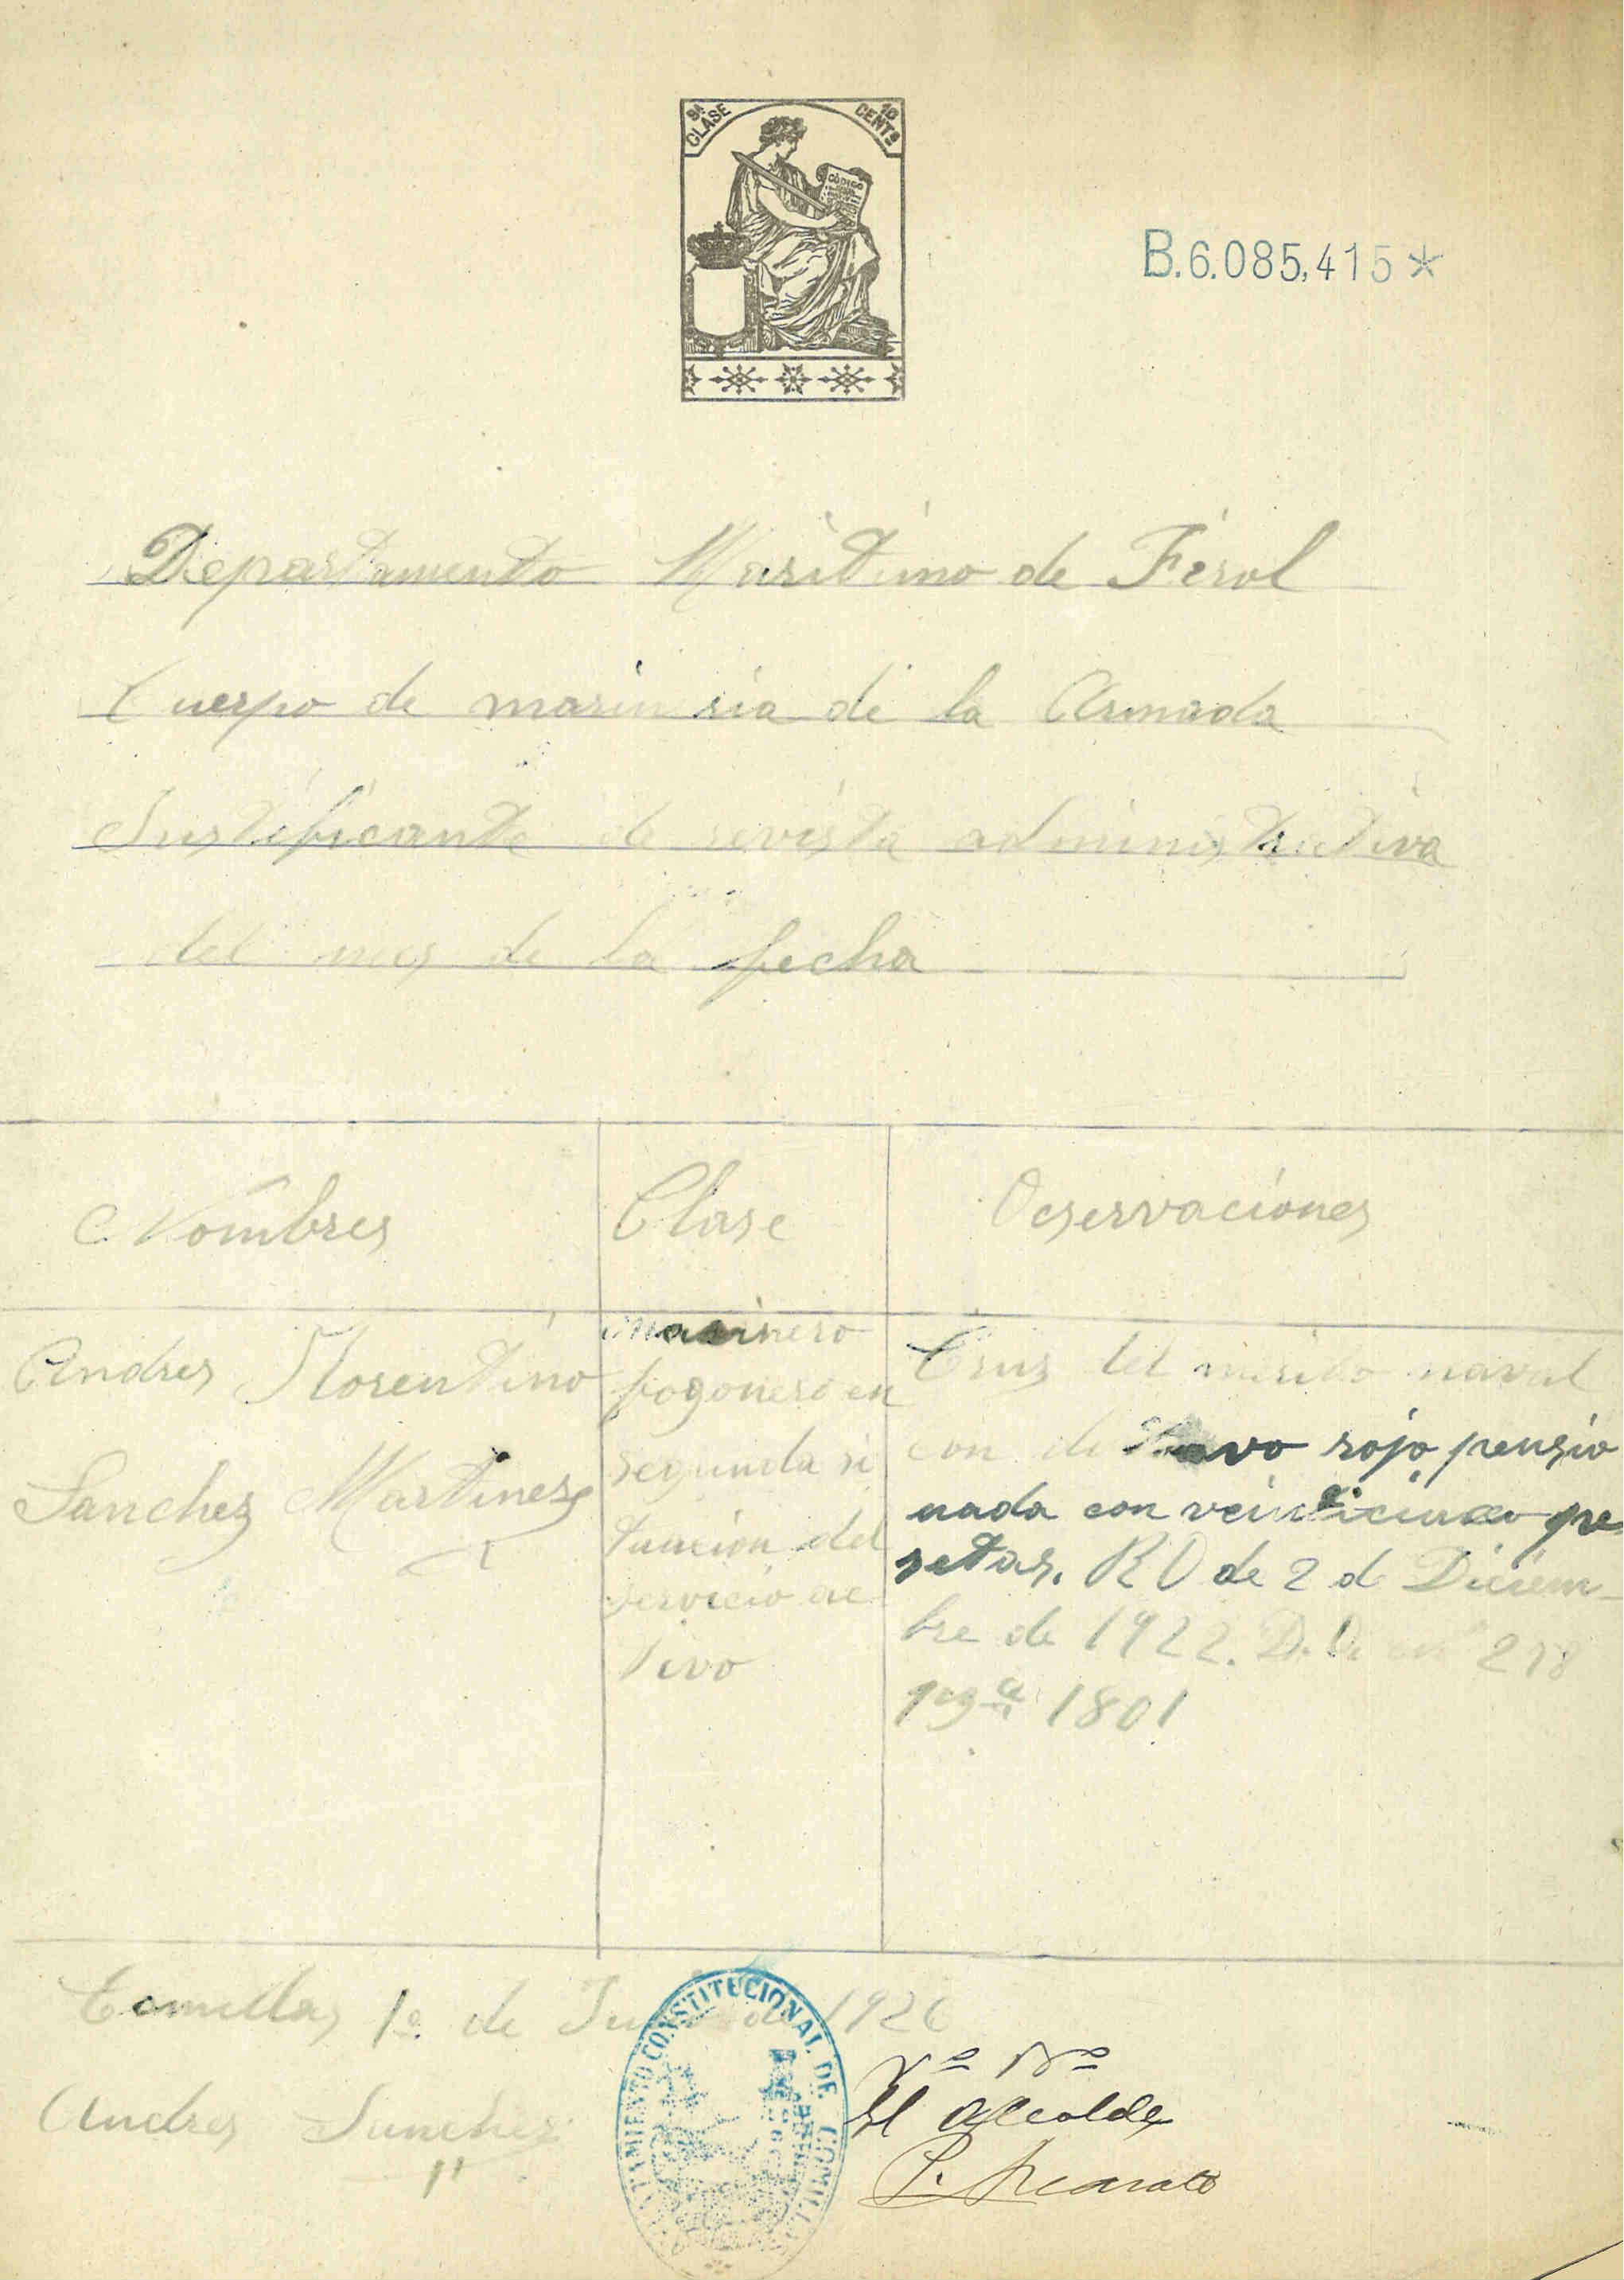 8ª CLASE 10 CENTS
CÓDIGO
B.6.085,415*
Departamento Maritimo de Ferol
Cuerpo de marineria de la Armada
Justificante de revista administrativa
del mes de la fecha
Nombres Clase Oeservaciones
Andres Florentino
Sanchez Martinez
marinero
fogonero en
segunda si
tuacion del
servicio ac
tivo
Cruz del merito naval
con distintivo rojo pensio
nada con veinticinco pe
setas. R O de 2 d Diciem
bre de 1922. D. O. nº 278
pagª 1801
Comillas 1º de de 1926
Andres Sanchez
AYUNTAMIENTO CONSTITUCIONAL DE COMILLAS
Vº Bº
El Alcalde
P.